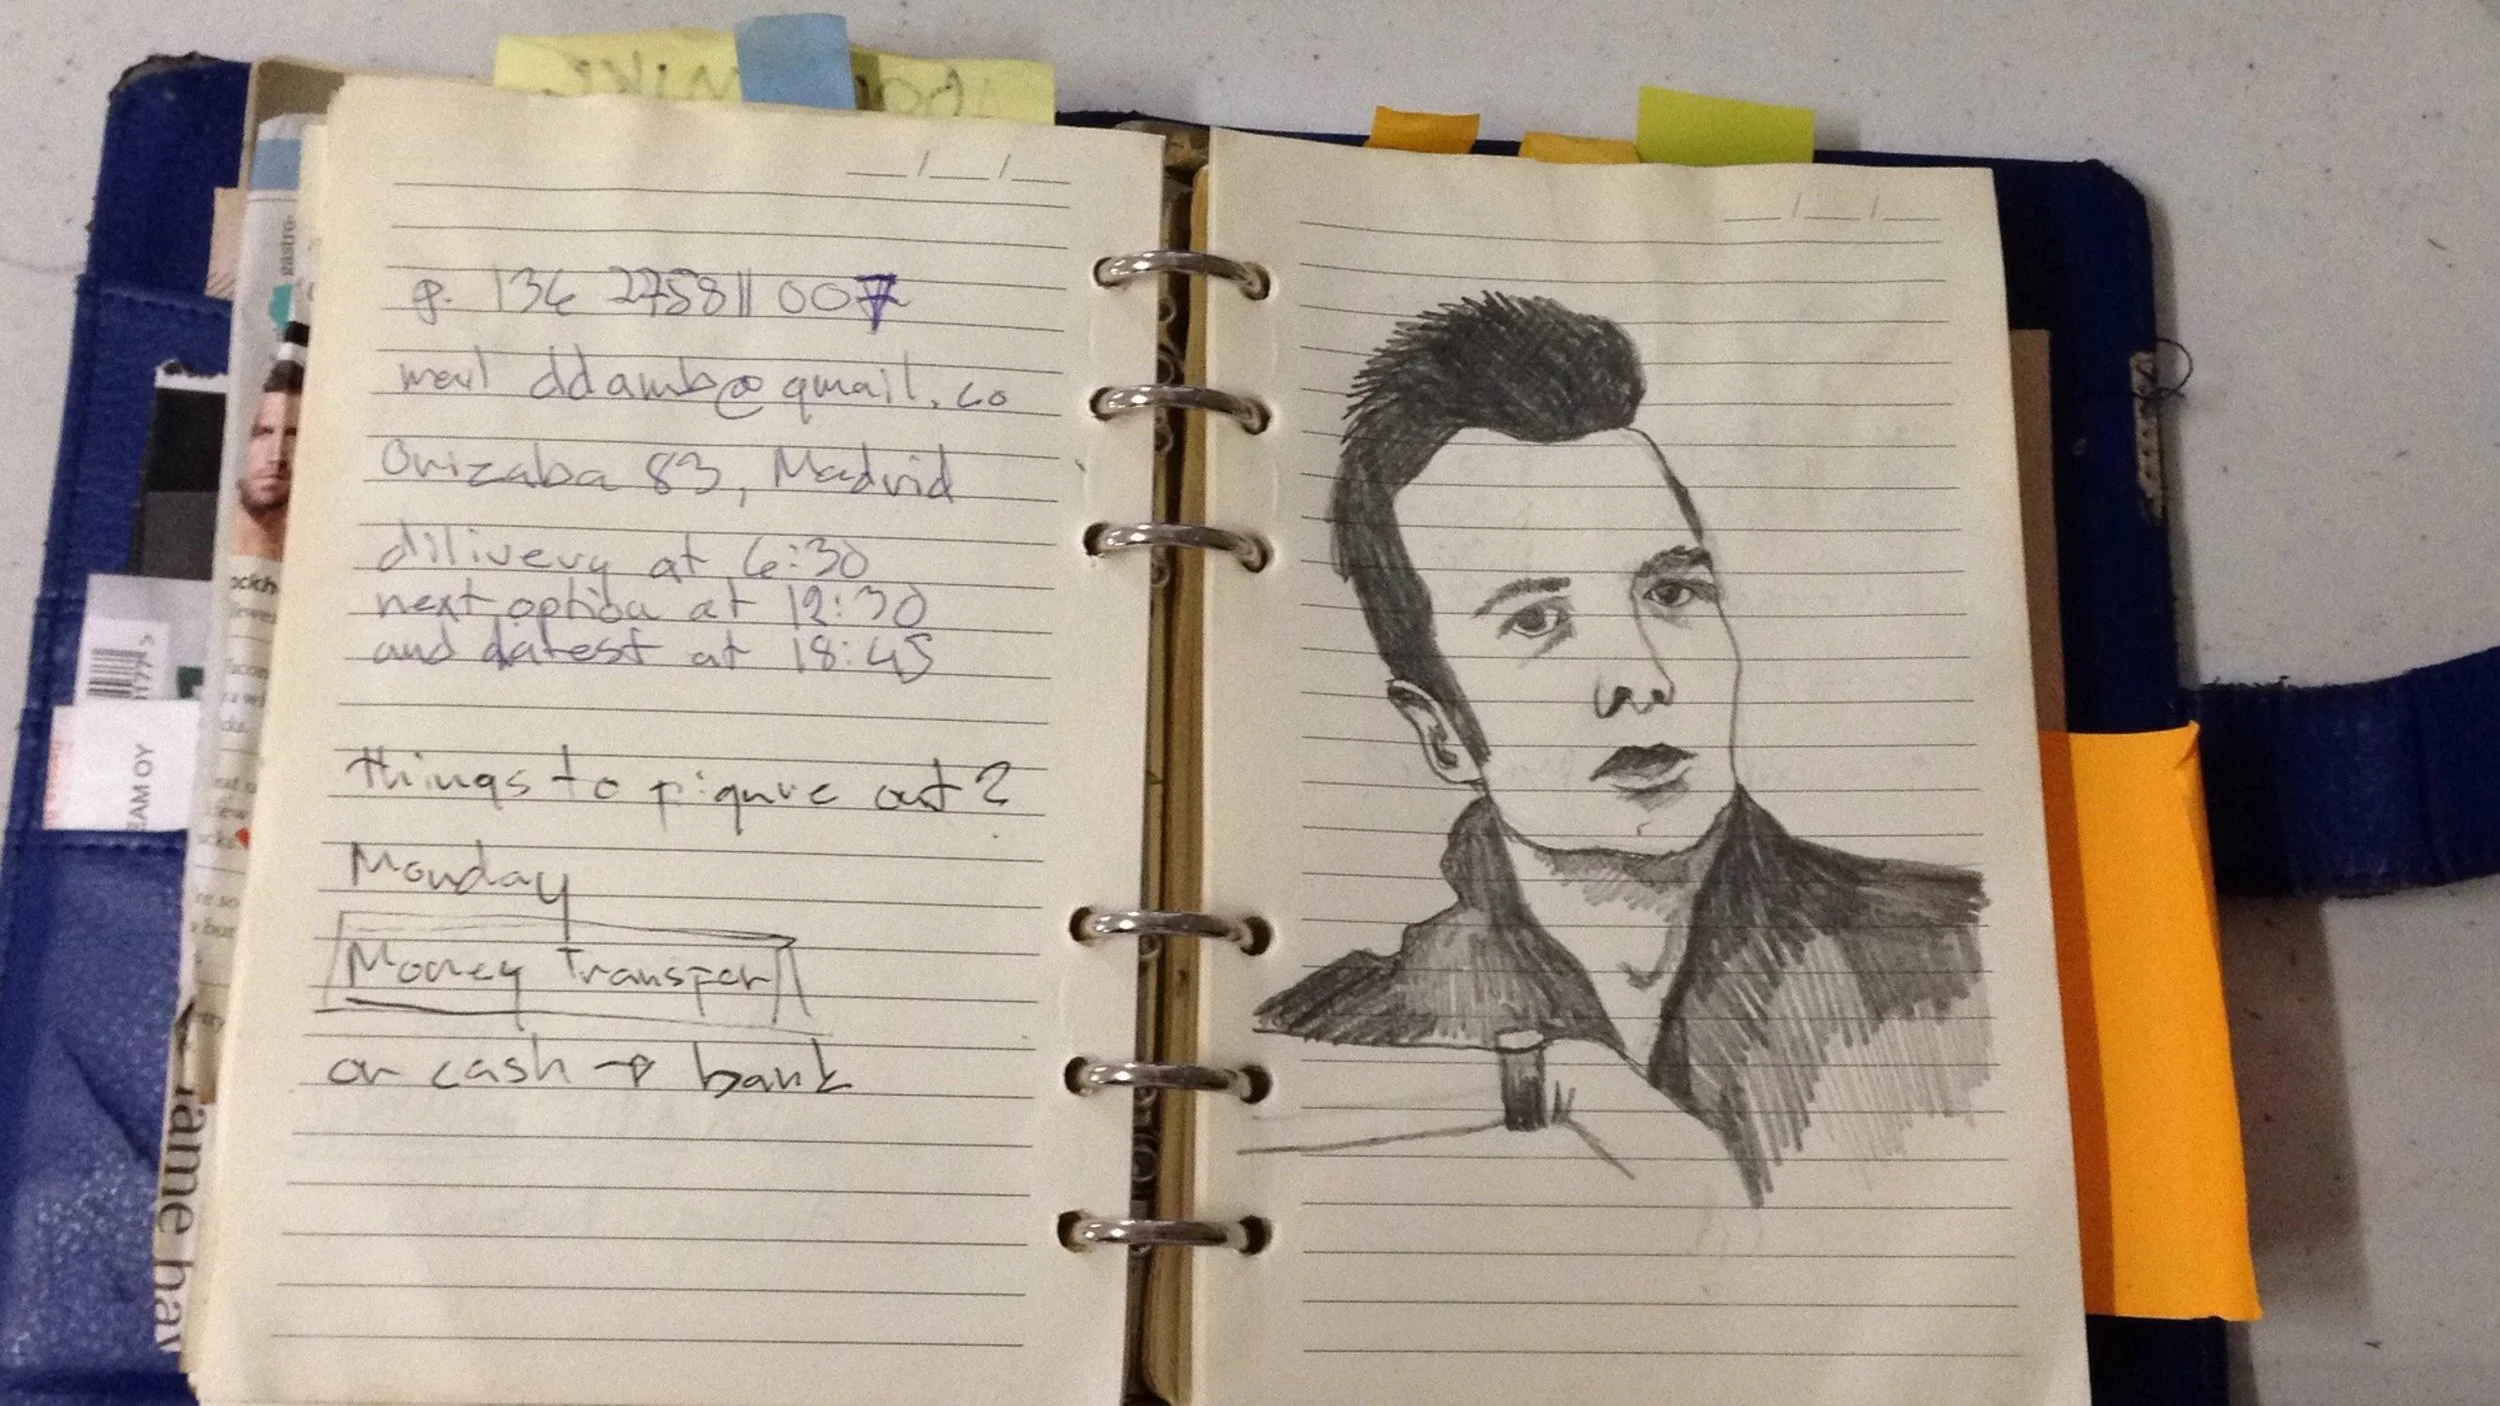 p. 136 2758 11 007
mail ddamb@gmail.co
Orizaba 83, Madrid
dilivery at 6:30
next optiba at 12:30
and datest at 18:45
things to figure out?
Monday
Money Transfer
or cash → bank
MIKE
EAM OY
ame hav
gastro-
ockh